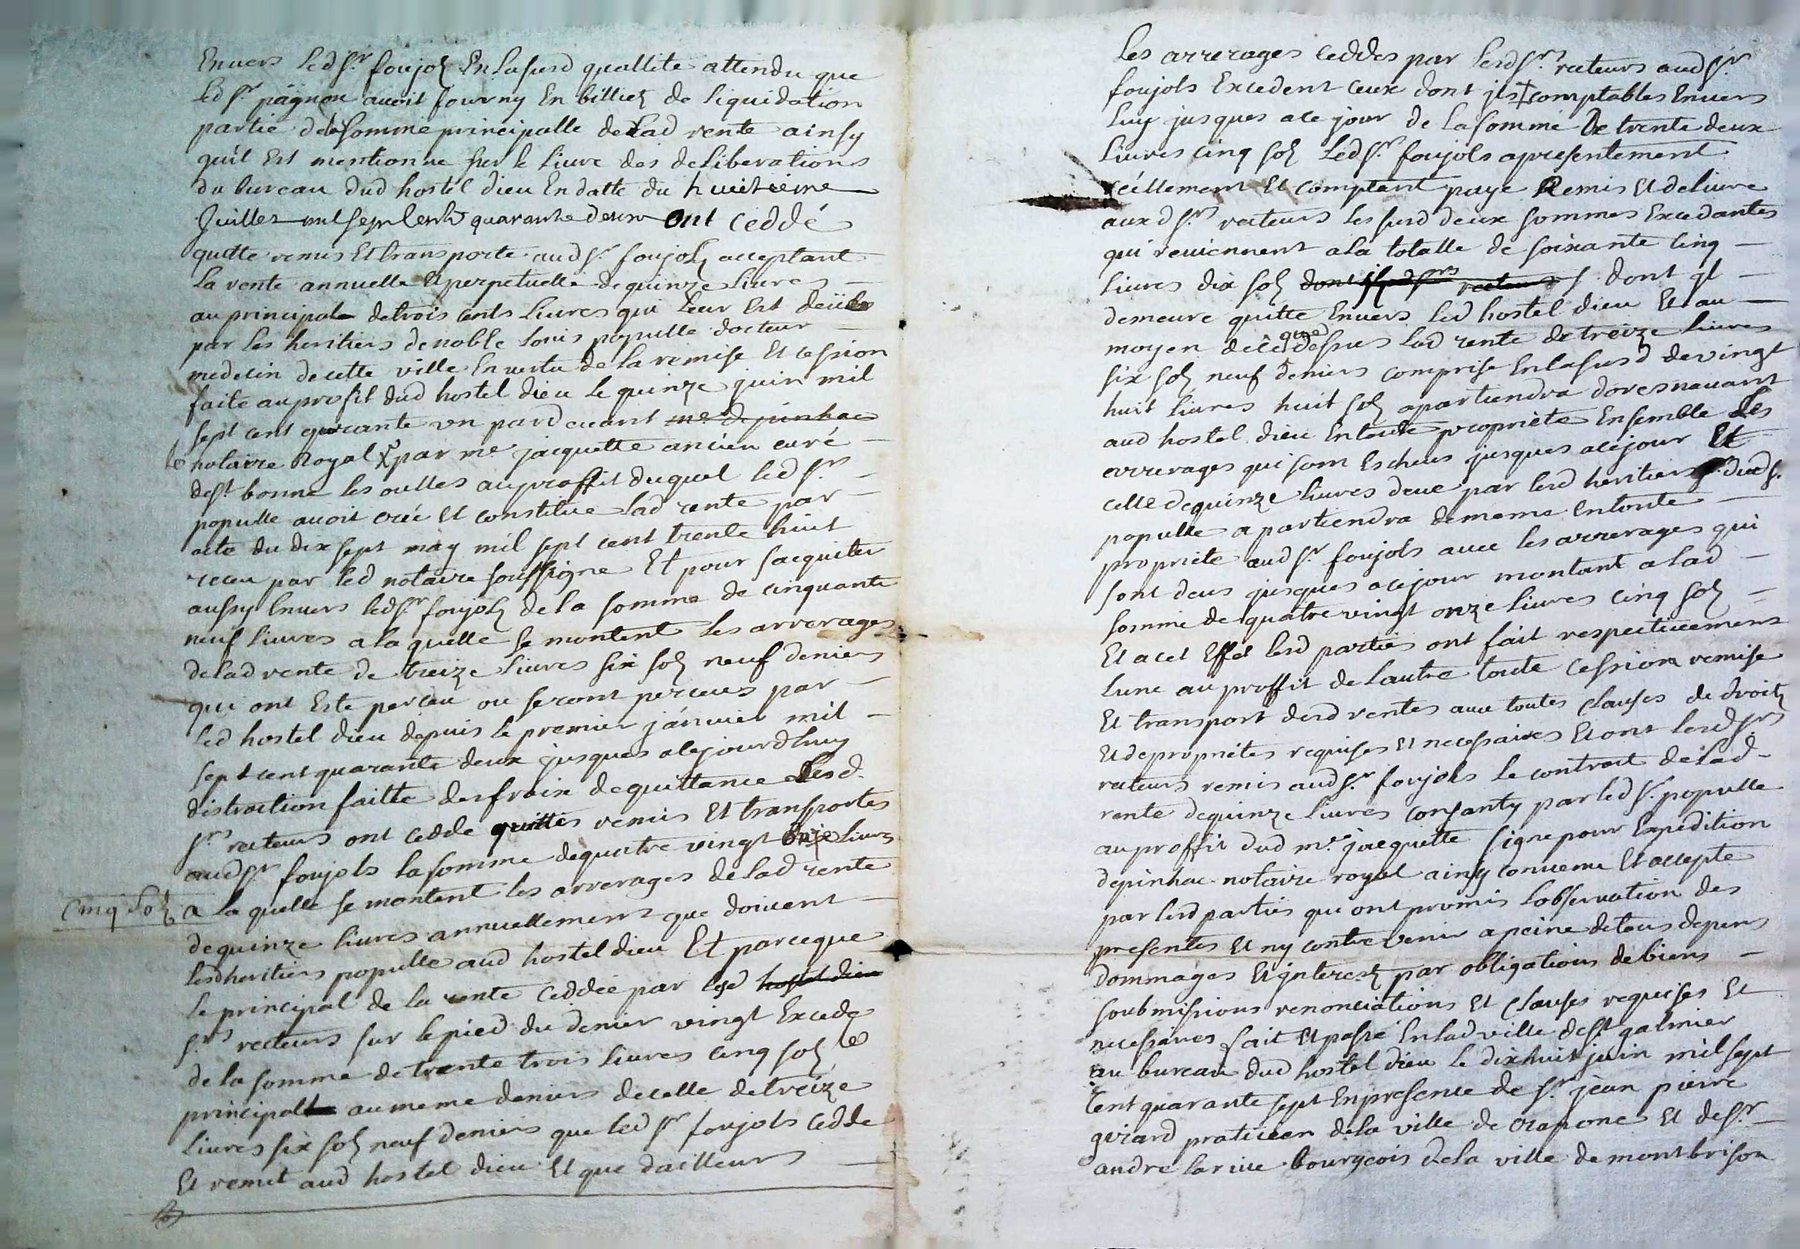 Envers led sr. foujols En lasusd quallité attendu que
led sr. pagnon avoit fourny En billiets de liquidation
partie dela somme principalle de lad rente ainsy
quil Est mentionné sur le livre des deliberations
du bureau dud hostel dieu En datte du huitieme
Juillet mil sept cents quarante deux ont ceddé
quitte remis Et transporté aud sr. foujols acceptant
la rente annuelle Et perpetuelle de quinze livres
au principal de trois cents livres qui leur Est deüe
par les heritiers de noble Louis populle docteur
medecin de cette ville En vertu de la remise Et cession
faite au profit dud hostel dieu le quinze juin mil
sept cent quarante un pardevant me depinhac
notaire Royal par me jacquette ancien curé
de st bonnet les oulles au proffit duquel led sr.
populle avoit creé Et constitué lad rente par
acte du dix sept may mil sept cent trente huit
receu par led notaire soussigné Et pour sacquiter
aussy Envers led sr. foujols de la somme de cinquante
neuf livres a la quelle se montent les arrerages
de lad rente de treize livres six sols neuf deniers
qui ont Esté perceu ou seront perceus par
led hostel dieu depuis le premier janvier mil
sept cent quarante deux jusques a cejourdhuy
distraction faitte des fraix de quittance Lesd.
srs recteurs ont ceddé quittés remis Et transportes
aud sr foujols la somme de quatre vingt onze livres
cinq sols a la quelle se montent les arrerages de lad rente
de quinze livres annuellement que doivent
lesd heritiers populle aud hostel dieu Et parceque
le principal de la rente ceddée par lesd hostel dieu
srs recteurs sur le pied du denier vingt Excede
de la somme de trente trois livres cinq sols le
principal au meme deniers de celle de treize
livres six sols neuf deniers que led sr foujols cedde
Et remet aud hostel dieu Et que dailleurs
Les arrerages ceddés par lesd srs. recteurs aud sr.
foujols Excedent ceux dont ils comptables Envers
luy jusques a ce jour de la somme De trente deux
livres cinq sols Led sr. foujols a presentement
réellement Et comptant payé Remis Et delivré
aux d srs recteurs les susd deux sommes Excedantes
qui reviennent a la totalle de soixante cinq
livres dix sols dont lesd srs recteurs dont il
demeure quitte Envers led hostel dieu Et au
moyen dece que dessus lad rente de treize livres
six sols neuf deniers comprise En lasusd de vingt
huit livres huit sols apartiendra doresnavant
aud hostel dieu En toute proprieté Ensemble Les
arrerages qui sont Escheus jusques acejour Et
celle de quinze livres deue par lesd heritiers dud s.
populle apartiendra de meme En toute
proprieté aud sr. foujols avec les arrerages qui
sont deus jusques acejour montant a lad
somme de quatre vingt onze livres cinq sols
Et a cet Effet lesd parties ont fait respectivement
lune au proffit de lautre toute cession remise
Et transport desd rentes avec toutes clauses de droits
Et de proprietés requises Et necessaires Et ont lesd srs
recteurs remis aud sr. foujols le contract de lad
rente de quinze livres consanty par led sr. populle
au proffit dud me jacquette signé pour Expedition
depinhac notaire royal ainsy convenu Et accepté
par lesd parties qui ont promis Lobservation des
presentes Et ny contrevenir a peine de tous depens
dommages Et jnterests par obligations de biens
soubmissions renonciations Et clauses requises Et
necessaires fait Et passé En lad ville de st galmier
au bureau dud hostel dieu le dix huit juin mil sept
cent quarante sept En presence de sr. jean pierre
girard praticien de la ville de craponne Et de sr.
andre larue bourgeois de la ville de montbrison